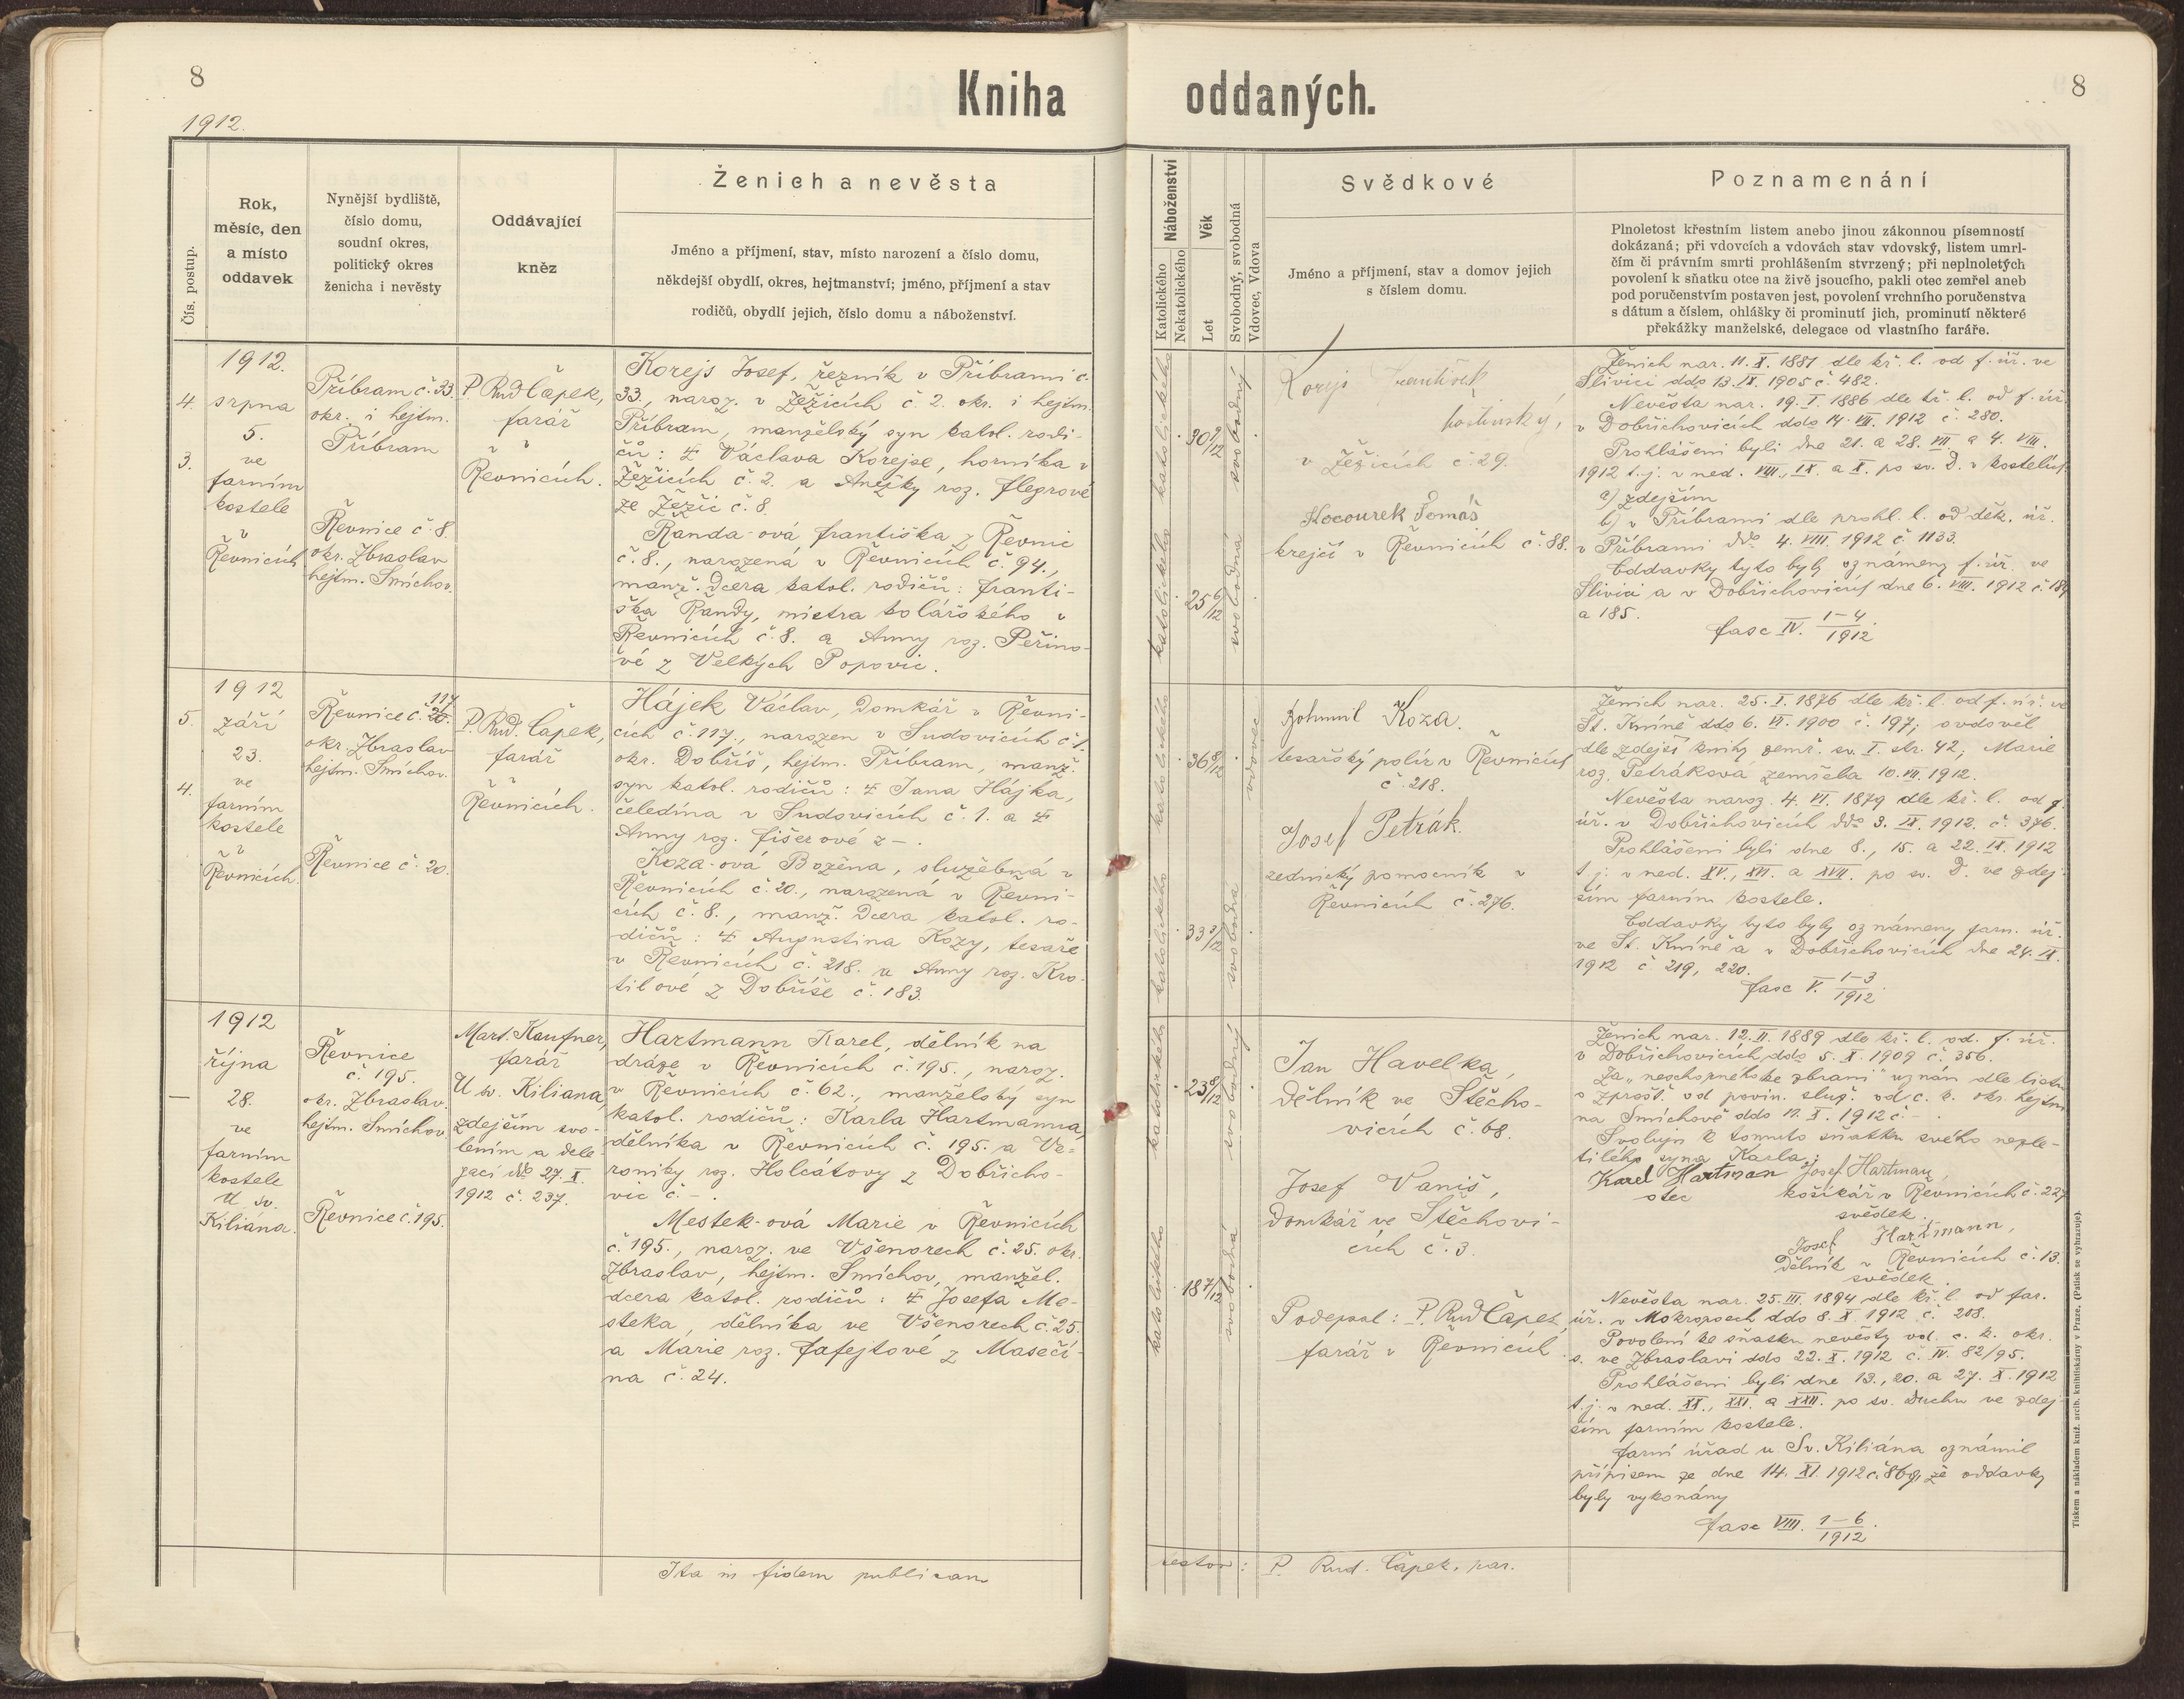 8
Kniha oddaných.
8
1912.
Čís. postup.
Rok,
měsíc, den
a místo
oddavek
Nynější bydliště,
číslo domu,
soudní okres,
politický okres
ženicha i nevěsty
Oddávající
kněz
Ženich a nevěsta
Jméno a příjmení, stav, místo narození a číslo domu,
někdejší obydlí, okres, hejtmanství; jméno, příjmení a stav
rodičů, obydlí jejich, číslo domu a náboženství.
Náboženství
Katolického
Nekatolického
Věk
Let
Svobodný, svobodná
Vdovec, Vdova
Svědkové
Jméno a příjmení, stav a domov jejich
s číslem domu.
Poznamenání
Plnoletost křestním listem anebo jinou zákonnou písemností
dokázaná; při vdovcích a vdovách stav vdovský, listem umrl-
čím či právním smrti prohlášením stvrzený; při neplnoletých
povolení k sňatku otce na živě jsoucího, pakli otec zemřel aneb
pod poručenstvím postaven jest, povolení vrchního poručenstva
s dátum a číslem, ohlášky či prominutí jich, prominutí některé
překážky manželské, delegace od vlastního faráře.
4.
3.
1912.
srpna
5.
ve
farním
kostele
v
Řevnicích
Příbram č. 33.
okr. i hejtm.
Příbram
Řevnice č. 8.
okr. Zbraslav
hejtm. Smíchov.
P. Rud Čapek,
farář
v
Řevnicích.
Korejs Josef, řezník v Příbrami č.
33., naroz. v Žežicích č. 2. okr. i hejtm.
Příbram, manželský syn katol. rodi-
čů: Václava Korejse, horníka v
Žežicích č. 2. a Anežky roz. Flegrové
ze Žežic č. 8.
Řanda-ová Františka z Řevnic
č. 8., narozená v Řevnicích č. 94.,
manž. dcera katol. rodičů: Franti-
ška Řandy, mistra kolářského v
Řevnicích č. 8. a Anny roz. Peřino-
vé z Velkých Popovic.
katolického
30 9/12
svobodný
katolického
25 6/12
svobodná
Korejs František
hostinský,
v Žežicích č. 29.
Kocourek Tomáš
krejčí v Řevnicích č. 88.
Ženich nar. 11. X. 1881 dle kř. l. od f. úř. ve
Slivici ddo 13. IX. 1905 č. 482.
Nevěsta nar. 19. I. 1886 dle kř. l. od f. úř.
v Dobřichovicích ddo 14. VII. 1912 č. 280.
Prohlášeni byli dne 21. a 28. VII. a 4. VIII.
1912 t. j. v ned. VIII., IX. a X. po sv. D. v kostelích
a) zdejším
b) v Příbrami dle prohl. l. od děk. úř.
v Příbrami ddo 4. VIII. 1912 č. 1133.
Oddavky tyto byly oznámeny f. úř. ve
Slivici a v Dobřichovicích dne 6. VIII. 1912 č. 184
a 185.
Fasc IV. 1-4/1912.
5.
4.
1912
září
23.
ve
farním
kostele
v
Řevnicích.
117
Řevnice č. 20.
okr. Zbraslav
hejtm. Smíchov.
Řevnice č. 20.
P. Rud. Čapek,
farář
v
Řevnicích.
Hájek Václav, domkář v Řevni-
cích č. 117., narozen v Sudovicích č. 1.
okr. Dobříš, hejtm. Příbram, manž.
syn katol. rodičů: Jana Hájka,
čeledína v Sudovicích č. 1. a
Anny roz. Fišerové z –.
Koza-ová Božena, služebná v
Řevnicích č. 20., narozená v Řevni-
cích č. 8., manž. dcera katol. ro-
dičů: Augustina Kozy, tesaře
v Řevnicích č. 218. a Anny roz. Kro-
tilové z Dobříše č. 183.
katolického
36 8/12
vdovec
katolického
33 3/12
svobodná
Bohumil Koza.
tesařský polír v Řevnicích
č. 218.
Josef Petrák.
zednický pomocník v
Řevnicích č. 276.
Ženich nar. 25. I. 1876 dle kř. l. od f. úř. ve
St. Kníně ddo 6. VI. 1900 č. 197; ovdověl
dle zdejší knihy zemř. sv. I. str. 42; Marie
roz. Petráková zemřela 10. VII. 1912.
Nevěsta naroz. 4. VI. 1879 dle kř. l. od f.
úř. v Dobřichovicích ddo 3. IX. 1912. č. 376.
Prohlášeni byli dne 8., 15. a 22. IX. 1912
t. j. v ned. XV., XVI. a XVII. po sv. D. ve zdej-
ším farním kostele.
Oddavky tyto byly oznámeny farn. úř.
ve St. Kníně a v Dobřichovicích dne 24. IX.
1912 č. 219, 220.
Fasc V. 1-3/1912.
—
1912
října
28.
ve
farním
kostele
U sv.
Kiliána.
Řevnice
č. 195.
okr. Zbraslav.
hejtm. Smíchov.
Řevnice č. 195.
Mart. Kaufner,
farář
U sv. Kiliana,
zdejším svo-
lením a dele-
gací ddo 27. X.
1912 č. 237.
Hartmann Karel, dělník na
dráze v Řevnicích č. 195., naroz.
v Řevnicích č. 62., manželský syn
katol. rodičů: Karla Hartmanna,
dělníka v Řevnicích č. 195. a Ve-
roniky roz. Holcátovy z Dobřicho-
vic č. –.
Mestek-ová Marie v Řevnicích
č. 195., naroz. ve Všenorech č. 25. okr.
Zbraslav, hejtm. Smíchov, manžel.
dcera katol. rodičů: Josefa Me-
steka, dělníka ve Všenorech č. 25.
a Marie roz. Fafejtové z Masečí-
na č. 24.
katolického
23 8/12
svobodný
katolického
18 7/12
svobodná
Jan Havelka,
dělník ve Štěcho-
vicích č. 68.
Josef Vaniš,
domkář ve Štěchovi-
cích č. 3.
Podepsal: P. Rud Čapek,
farář v Řevnicích.
Ženich nar. 12. II. 1889 dle kř. l. od. f. úř.
v Dobřichovicích ddo 5. X. 1909 č. 356.
Za „neschopného ke zbrani" uznán dle listu
o zprošť. od povin. služ. od c. k. okr. hejtm.
na Smíchově ddo 11. X. 1912 č –.
Svoluji k tomuto sňatku svého neple-
tilého syna Karla:
Karel Hartman Josef Hartman,
otec košíkář v Řevnicích č. 227
svědek.
Josef Hartmann,
dělník v Řevnicích č. 13.
svědek.
Nevěsta nar. 25. III. 1894 dle kř. l. od far.
úř. v Mokropsech ddo 8. X. 1912 č. 208.
Povolení ke sňatku nevěsty od. c. k. okr.
s. ve Zbraslavi ddo 22. X. 1912 č. IV. 82/95.
Prohlášeni byli dne 13., 20. a 27. X. 1912
t. j. v ned. XX., XXI. a XXII. po sv. Duchu ve zdej-
ším farním kostele.
Farní úřad u Sv. Kiliána oznámil
přípisem ze dne 14. XI. 1912 č. 869, že oddavky
byly vykonány
Fasc VIII. 1-6/1912.
Ita in fidem publicam
testor: P. Rud. Čapek, par.
Tiskem a nákladem kníž. arcib. knihtiskárny v Praze. (Patisk se vyhrazuje).